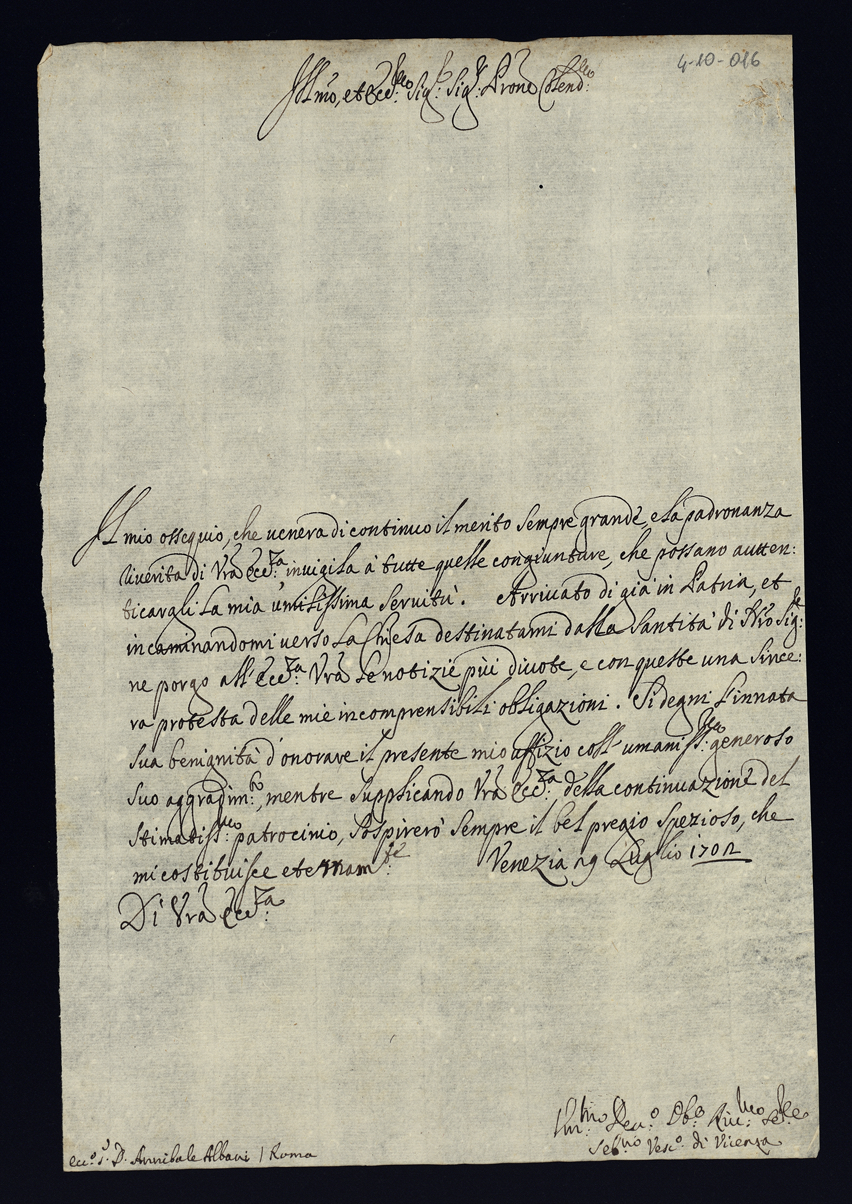 4-10-016
Ill.mo, et Ecc.mo Sig.r Sig.r Prone Colend.mo
Il mio ossequio, che venera di continuo il merito sempre grande, e la padronanza
riverita di Vrã Ecc.za, invigila à tutte quelle congiunture, che possano autten:
ticargli la mia umilissima servitù. Arrivato di già in Patria, et
incaminandomi verso la Chiesa destinatami dalla Santità di Nrõ Sig.re
ne porgo all'Ecc.za Vrã le notizie più divote, e con queste una since:
ra protesta delle mie incomprensibili obligazioni. Si degni l'innata
sua benignità d'onorare il presente mio uffizio coll'umaniss.mo generoso
suo aggradim.to, mentre supplicando Vrã Ecc.za, della continuazione del
stimatiss.mo patrocinio, sospirerò sempre il bel pregio spezioso, che
mi costituisce eternam.te Venezia 29 Luglio 1702
Di Vrã Ecc.za
Um.mo Dev.o Ob.o
Seb.no Vesc.o di Vicenza
D. Annibale Albani / Roma